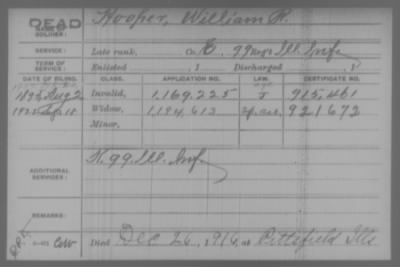 DEAD Hooper, William R.
NAME OF SOLDIER:
SERVICE: Late rank, Co. E, 99 Reg't Ill. Inf.
TERM OF SERVICE: Enlisted , 1 Discharged , 1
DATE OF FILING. CLASS. APPLICATION NO. LAW. CERTIFICATE NO.
Aug 2 Invalid, 1,169.225 J 915.461
Widow, 1,194,613 921672
Minor,
ADDITIONAL SERVICES: K. 99 Ill. Inf.
REMARKS:
Died Dec 26, 1916, at Pittsfield Ills